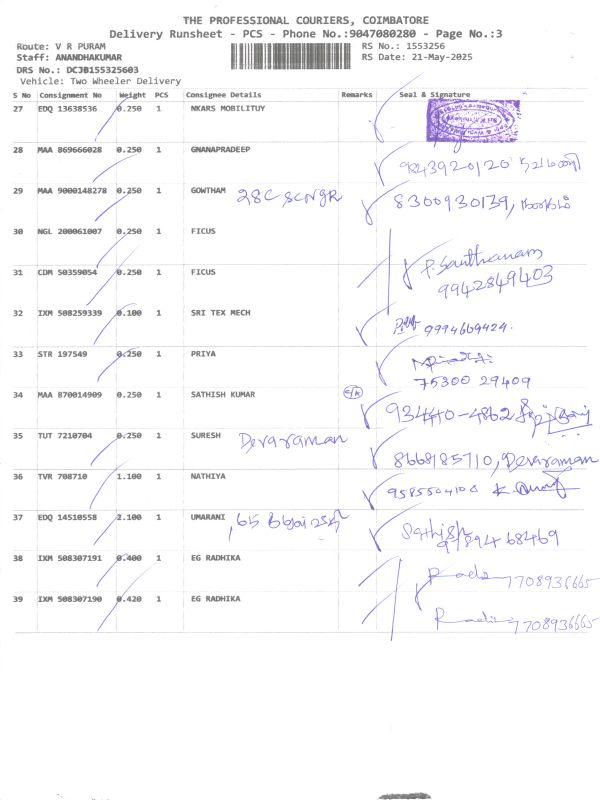 THE PROFESSIONAL COURIERS, COIMBATORE
Delivery Runsheet - PCS - Phone No.:9047080280 - Page No.:3
Route: V R PURAM RS No.: 1553256
Staff: ANANDHAKUMAR RS Date: 21-May-2025
DRS No.: DCJB155325603
Vehicle: Two Wheeler Delivery
S No Consignment No Weight PCS Consignee Details Remarks Seal & Signature
27 EDQ 13638536 0.250 1 NKARS MOBILITUY
28 MAA 869666028 0.250 1 GNANAPRADEEP
9843920120
29 MAA 9000148278 0.250 1 GOWTHAM 28C SCNGR 8300930139,
30 NGL 200061007 0.250 1 FICUS
P. Santhanam
31 CDM 50359054 0.250 1 FICUS
9942849403
32 IXM 508259339 0.100 1 SRI TEX MECH
9994609424.
33 STR 197549 0.250 1 PRIYA
75300 29409
34 MAA 870014909 0.250 1 SATHISH KUMAR
93440-4862
35 TUT 7210704 0.250 1 SURESH Devaraman
8668185710, Devaraman
36 TVR 708710 1.100 1 NATHIYA
37 EDQ 14510558 2.100 1 UMARANI
Sathish
97894 68469
38 IXM 508307191 0.400 1 EG RADHIKA
7708936665
39 IXM 508307190 0.420 1 EG RADHIKA
7708936665